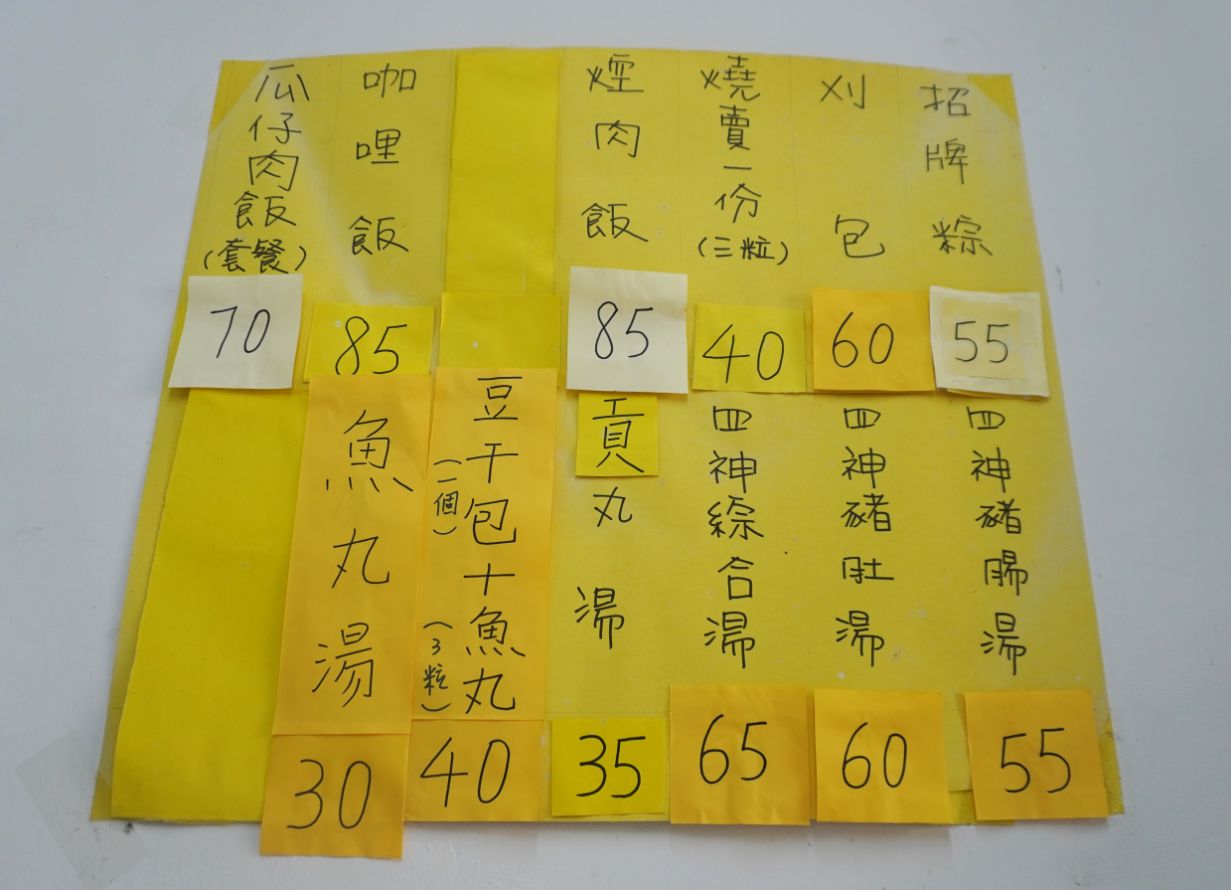 招牌粽
55
刈包
60
燒賣一份(三粒)
40
焢肉飯
85
咖哩飯
85
瓜仔肉飯(套餐)
70
四神豬腸湯
55
四神豬肚湯
60
四神綜合湯
65
貢丸湯
35
豆干包十魚丸
(一個)
(3粒)
40
魚丸湯
30